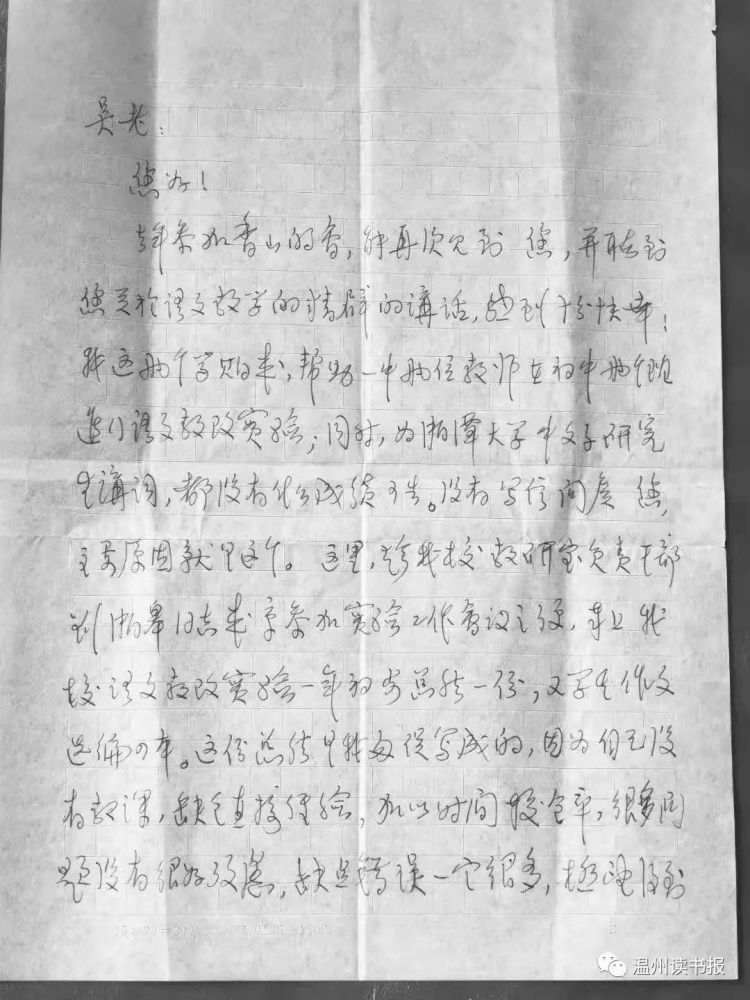 吴老：
您好！
去年参加香山的会，能再次见到 您，并聆到
您关于语文教学的精辟的讲话，感到十分快幸！
我这两个学期来，帮助一中两位教师在初中两个班
进行语文教改实验；同时，为湘潭大学中文系研究
生讲词，都没有什么成绩可告。没有写信问候 您，
主要原因就是这个。这里，趁我校教研室负责干部
刘湘皋同志来京参加实验工作会议之便，寄上我
校语文教改实验一年初步总结一份，又学生作文
选编四本。这份总结是我每误写成的，因为自己没
有教课，缺乏直接经验，加以时间较仓卒，很多问
题没有很好研究，缺点错误一定很多，极望得到
15×20=300
温州读书报